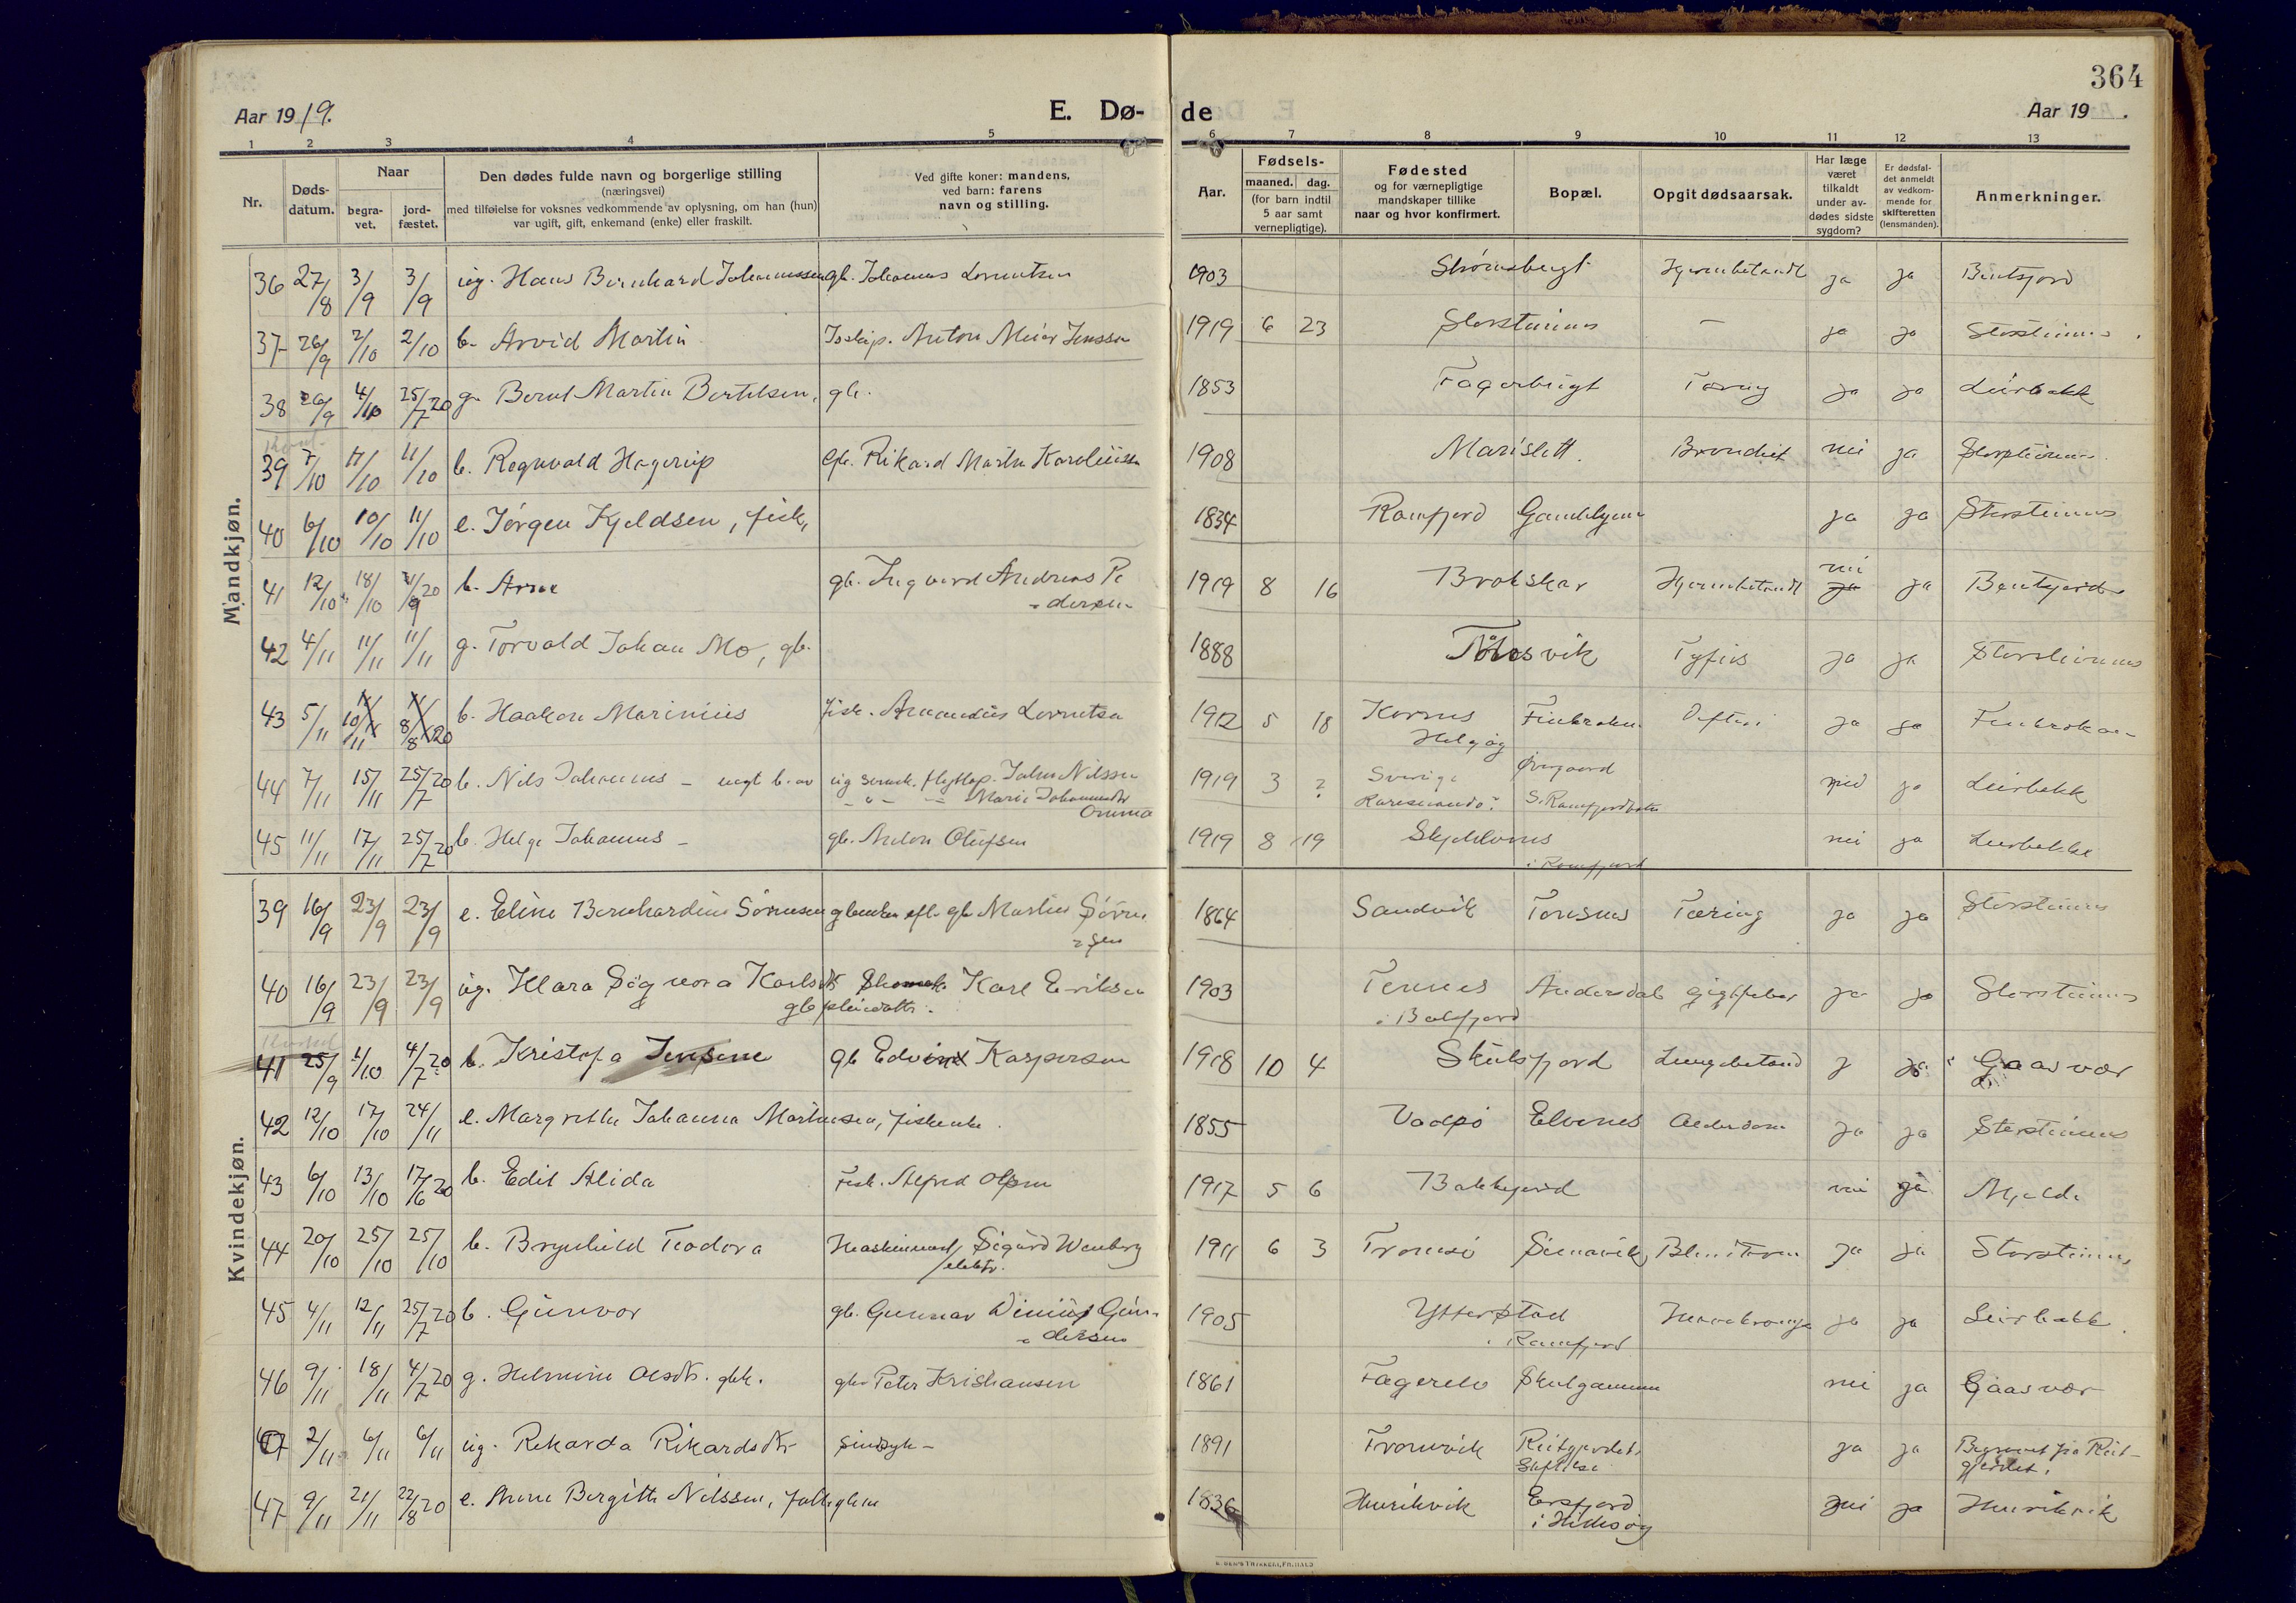 364
Aar 1919. E. Dø- de Aar 19 .
1 2 3 4 5 6 7 8 9 10 11 12 13
Nr.
Døds-
datum.
Naar
begra-
vet.
jord-
fæstet.
Den dødes fulde navn og borgerlige stilling
(næringsvei)
med tilføielse for voksnes vedkommende av oplysning, om han (hun)
var ugift, gift, enkemand (enke) eller fraskilt.
Ved gifte koner: mandens,
ved barn: farens
navn og stilling.
Aar.
Fødsels-
maaned. dag.
(for barn indtil
5 aar samt
vernepligtige).
Fødested
og for værnepligtige
mandskaper tillike
naar og hvor konfirmert.
Bopæl.
Opgit dødsaarsak.
Har læge
været
tilkaldt
under av-
dødes sidste
sygdom?
Er dødsfal-
det anmeldt
av vedkom-
mende for
skifteretten
(lensmanden).
Anmerkninger.
Mandkjøn.
36 27/8 3/9 3/9 ug. Hans Bernhard Johannessen gb. Johannes Lorentsen 1903 Strømsbugt ja ja Bentsjord
37 26/9 2/10 2/10 b. Arvid Martin Anton Meier Jenssen 1919 6 23 Storsteinnes — ja ja Storsteinnes
38 26/9 4/10 25/7 20 g. Bernt Martin Bertelsen, gb. 1853 Fagerbugt Tæring ja ja Leirbakk
39 7/10 11/10 11/10 b. Ragnvald Hagerup Rikard Martin Karoliussen 1908 Marislett nei ja Storsteinnes
40 6/10 10/10 11/10 e. Jørgen Kjeldsen, fisk, 1834 Ramfjord Gamlegjerde ja ja Storsteinnes
41 12/10 18/10 9 20 b. Arne gb. Ingvard Andreas Pe
dersen 1919 8 16 Brokskar nei ja ja Bentsjord
42 4/11 11/11 11/11 g. Torvald Johan Mo, gb. 1888 Tyfus ja ja Storsteinnes
43 5/11 10/11 8/8 20 b. Haakon Marinius fisk. Amandus Lorentsen 1912 5 18 Kornes
Helgøy Finkroken Difteri ja ja Finkroken
44 7/11 15/11 25/7 20 b. Nils Johannes - uegt b. av ug svensk. flytlap. Johan Nilssen
Marie Johannesdtr
Omma 1919 3 ? Sverige
Karesuando? Øvergaard
S. Ramfjordbotn nei ja Leirbakk
45 11/11 17/11 25/7 20 b. Helge Johannes - gb. Anton Olufsen 1919 8 19 Skjeldvornes
i Ramfjord nei ja Leirbakk
Kvindekjøn.
39 16/9 23/9 23/9 e. Eline Bernhardine Sørensen gbenke eft. gb Martin Søren
sen 1864 Sandvik Tonsnes Tæring ja ja Storsteinnes
40 16/9 23/9 23/9 ug. Klara Signora Karlsdtr
gbpleiedatter. Skomak. Karl Eriksen 1903 Tennes
i Balsfjord Andersdal gigtfeber ja ja Storsteinnes
41 25/9 1/10 4/7 20 b. Kristofa Jensine gb Edvind Kaspersen 1918 10 4 Skulsfjord Lungebetænd j ja Gaasvær
42 12/10 17/10 24/11 e. Margrethe Johanna Martinsen, fiskenke. 1855 Vadsø Elvenes Alderdom ja ja Storsteinnes
43 6/10 13/10 17/6 20 b. Edit Alida Fisk. Alfred Olsen 1917 5 6 Bakkejord nei ja Mjelde
44 20/10 25/10 25/10 b. Brynhild Teodora Maskinmest. Sigurd Wenberg
elektr. 1911 6 3 Tromsø Simavik ja ja Storsteinnes
45 4/11 12/11 25/7 20 b. Gunvor gb. Gunnar Dinius Gun-
dersen 1905 Ytterstad
i Ramfjord ja ja Leirbakk.
46 9/11 18/11 4/7 20 g. Helmine Olsdtr. gbk. gbr Peter Kristiansen 1861 Fagerelv Skulgammen nei ja Gaasvær
47 2/11 6/11 6/11 ug. Rikarda Rikardsdtr sindsyk - 1891 Tromvik Reitgjerdet
ja ja Begravet fra Reit-
gjerdet.
47 9/11 21/11 22/8 20 e. Anne Bergitte Nilssen, 1836 Henrikvik Ersfjord
i Hillesøy nei ja Henrikvik